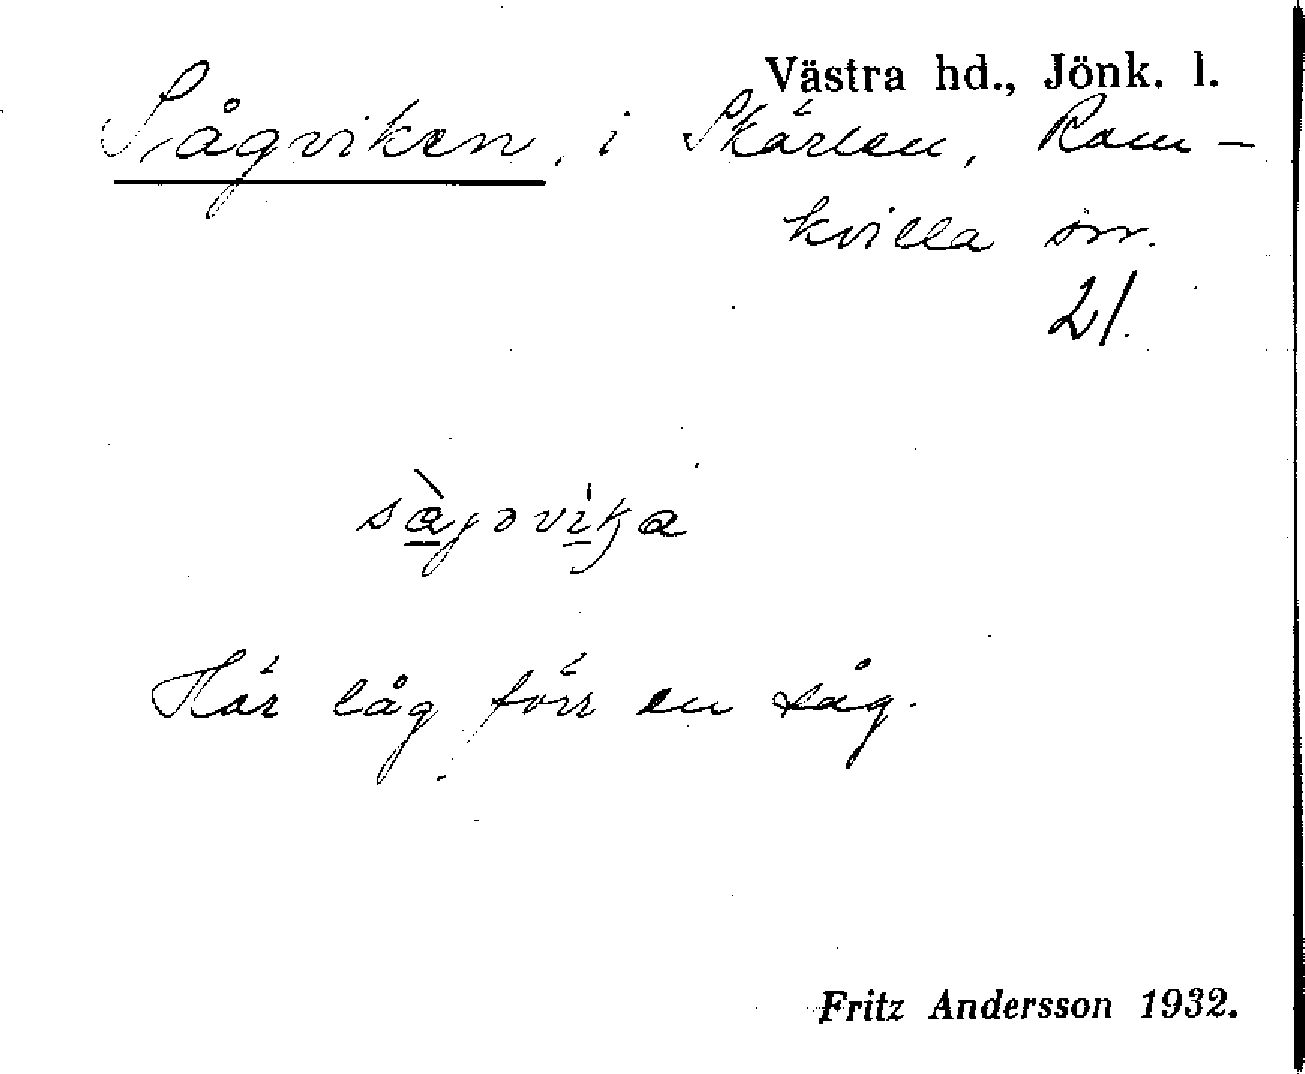 Västra hd., Jönk. l.
Sågviken, i Skärlen, Ram-
kvilla sn.
21.
sàgovika
Här låg förr en såg.
Fritz Andersson 1932.